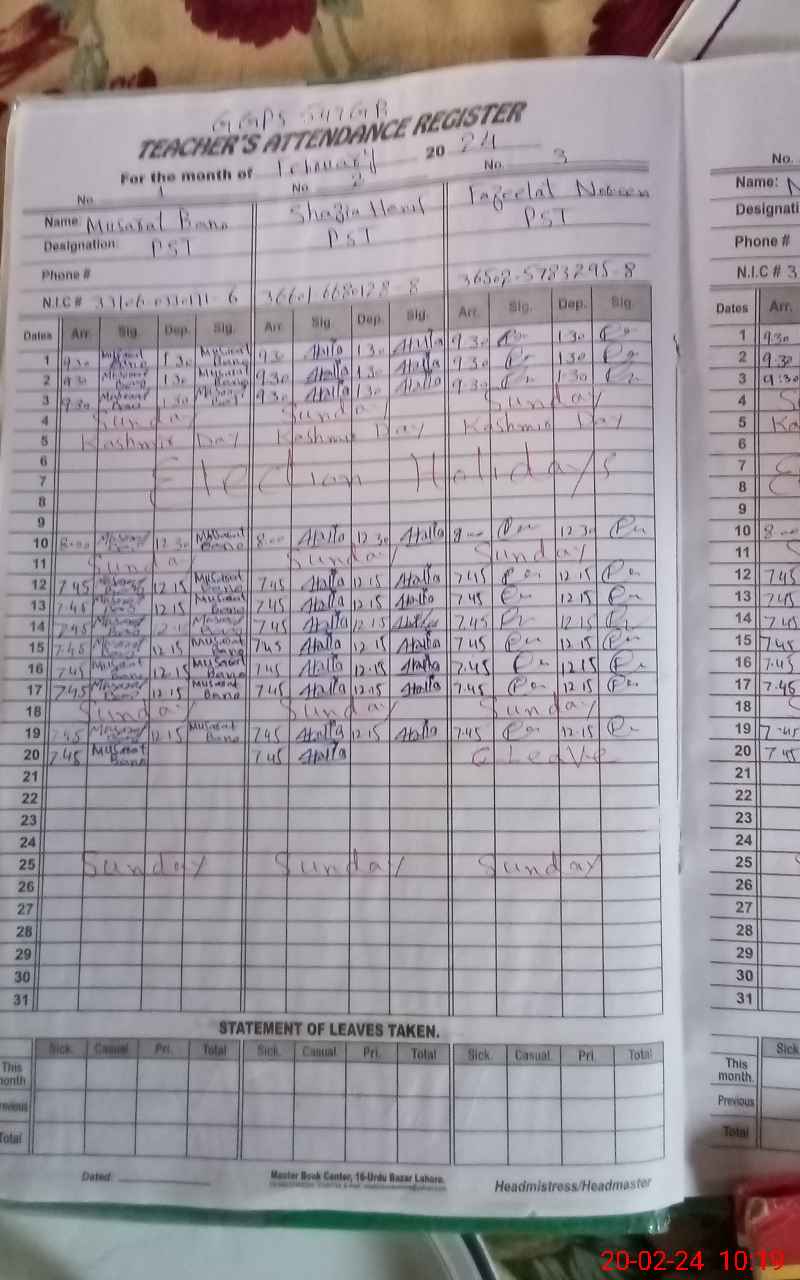 GGPS 547 GB
TEACHER'S ATTENDANCE REGISTER
For the month of February 20 24
No. 1 No 2 No. 3 No.
Name: Musarat Bano Shazia Tazeelat Name:
Designation: PST PST PST Designati
Phone # Phone #
N.I.C # 36502-5783295-8 N.I.C # 3
Dates Arr. Sig. Dep. Sig. Arr. Sig. Dep. Sig. Arr. Sig. Dep. Sig. Dates Arr.
1 9.30 Musarat Bano 1 30 Musarat Bano 9.30 1 30 9.30 1 30 1 9.30
2 9.30 Musarat Bano 1 30 Musarat Bano 9.30 1 30 9.30 1.30 2 9.30
3 9.30 Musarat Bano 1.30 Musarat Bano 9.30 1.30 9.30 1.30 3 9:30
4 Sunday Sunday Sunday 4 S
5 Kashmir Day Kashmir Day Kashmir Day 5 Ka
6 6
7 Election Holidays 7
8 8
9 9
10 8.00 Musarat Bano 12 30 Musarat Bano 8.00 12 30 8.00 12 30 10 8.00
11 Sunday Sunday Sunday 11 S
12 7.45 Musarat Bano 12 15 Musarat Bano 7.45 12 15 7.45 12 15 12 7.45
13 7.45 Musarat Bano 12.15 Musarat Bano 7.45 12 15 7.45 12.15 13 7.45
14 7.45 Musarat Bano 12 15 Musarat Bano 7.45 12.15 7.45 12.15 14 7.45
15 7.45 Musarat Bano 12.15 Musarat Bano 7.45 12 15 7.45 12 15 15 7.45
16 7.45 Musarat Bano 12.15 Musarat Bano 7.45 12.15 7.45 12 15 16 7.45
17 7.45 Musarat Bano 12.15 Musarat Bano 7.45 12.15 7.45 12 15 17 7.45
18 Sunday Sunday Sunday 18 S
19 7.45 Musarat Bano 12 15 Musarat Bano 7.45 12 15 7.45 12 15 19 7.45
20 7.45 Musarat Bano 7.45 C Leave 20 7.45
21 21
22 22
23 23
24 24
25 Sunday Sunday Sunday 25
26 26
27 27
28 28
29 29
30 30
31 31
STATEMENT OF LEAVES TAKEN.
Sick. Casual Pri. Total Sick. Casual. Pri. Total Sick. Casual. Pri. Total Sick
This month This month.
Previous Previous
Total Total
Dated: Master Book Center, 16-Urdu Bazar Lahore. Headmistress/Headmaster
20-02-24 10:19